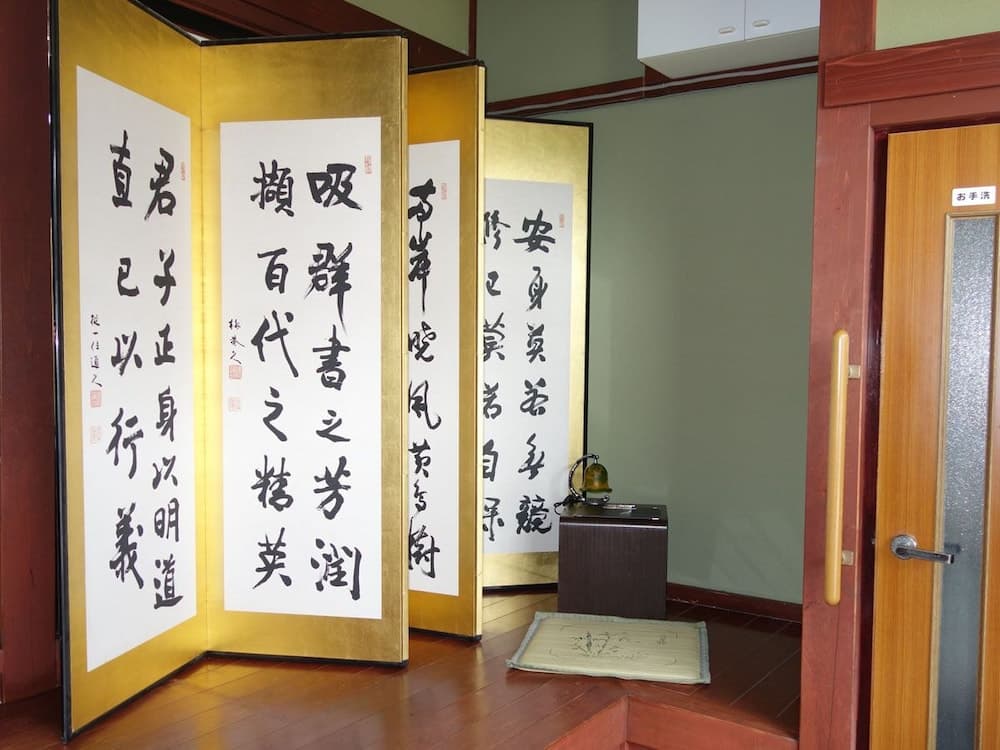 安身莫若無競
修己莫若自保
両岸暁風黄鳥樹
吸群書之芳潤
擷百代之精英
君子正身以明道
直己以行義
お手洗